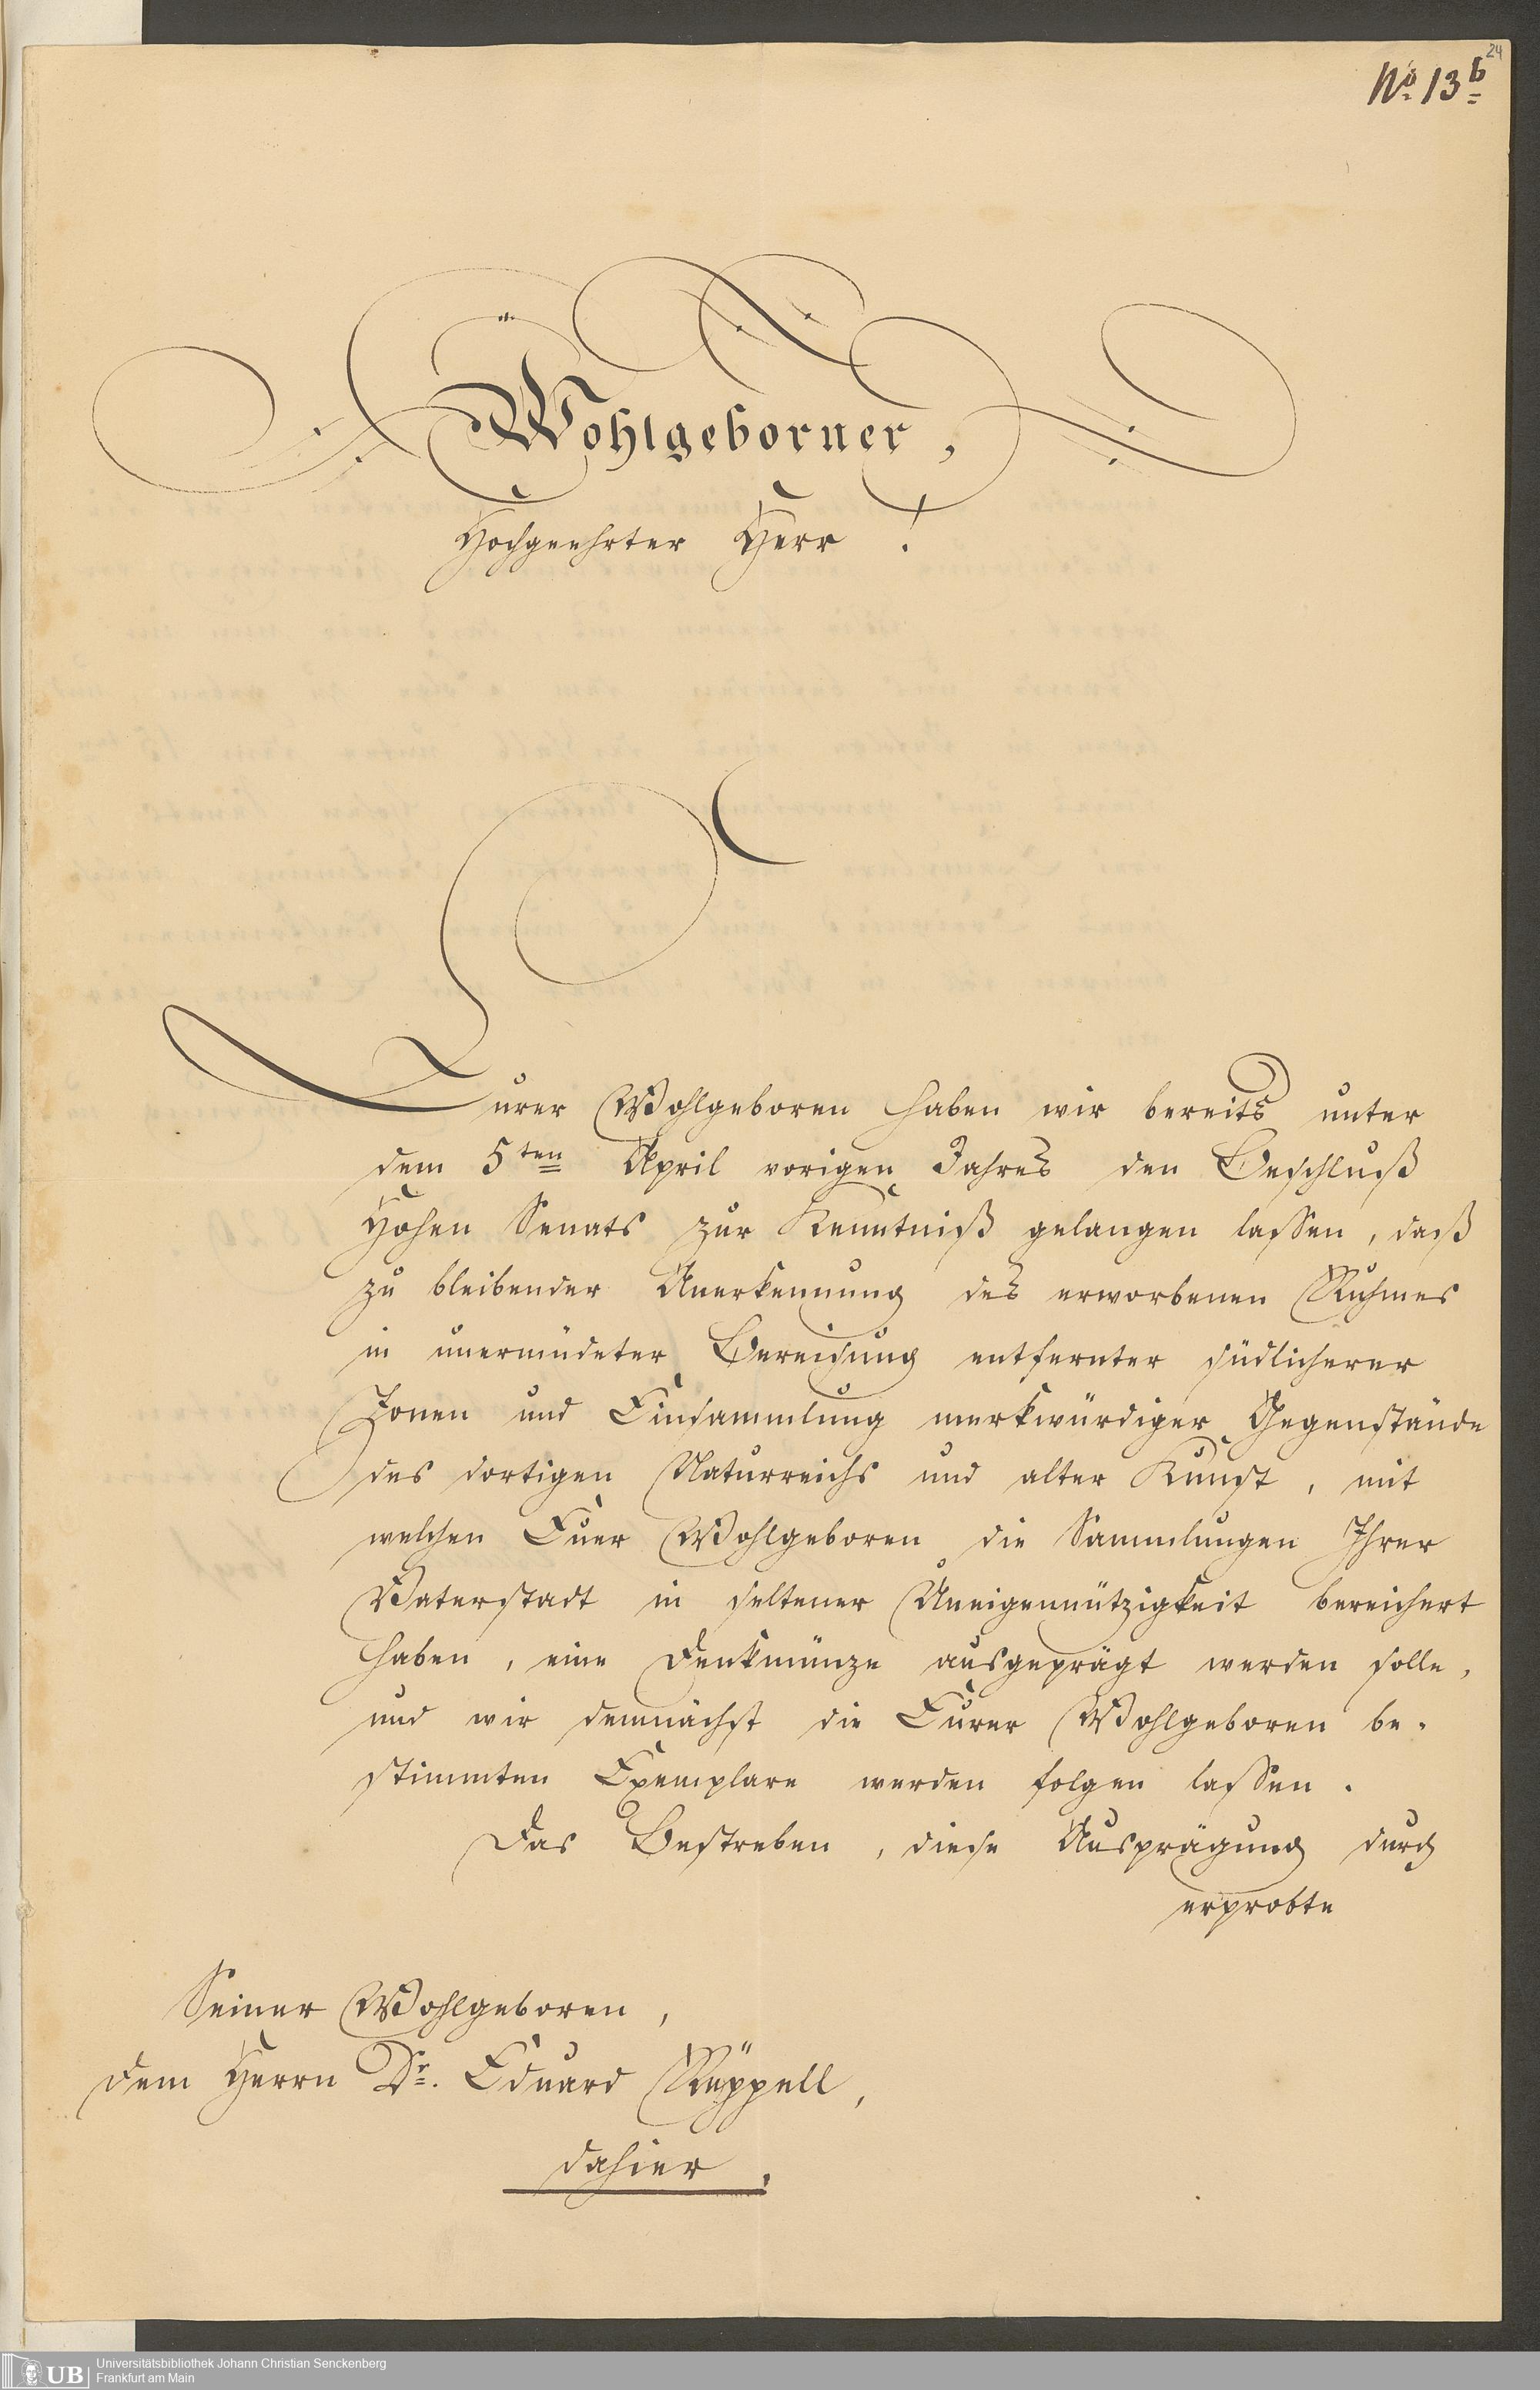 24
No. 13b
Wohlgeborner,
Hochgeehrter Herr!
Eurer Wohlgeboren haben wir bereits unter
dem 5ten April vorigen Jahres den Beschluß
Hohen Senats zur Kenntniß gelangen lassen, daß
zu bleibender Anerkennung des erworbenen Ruhmes
in unermüdeter Bereisung entfernter südlicherer
Zonen und Einsammlung merkwürdiger Gegenstände
des dortigen Naturreichs und alter Kunst, mit
welchen Euer Wohlgeboren die Sammlungen Ihrer
Vaterstadt in seltener Uneigennützigkeit bereichert
haben, eine Denkmünze ausgeprägt werden solle,
und wir demnächst die Eurer Wohlgeboren be-
stimmten Exemplare werden folgen lassen.
Das Bestreben, diese Ausprägung durch
erprobte
Seiner Wohlgeboren,
dem Herrn Dr. Eduard Rüppell,
dahier.
UB
Universitätsbibliothek Johann Christian Senckenberg
Frankfurt am Main